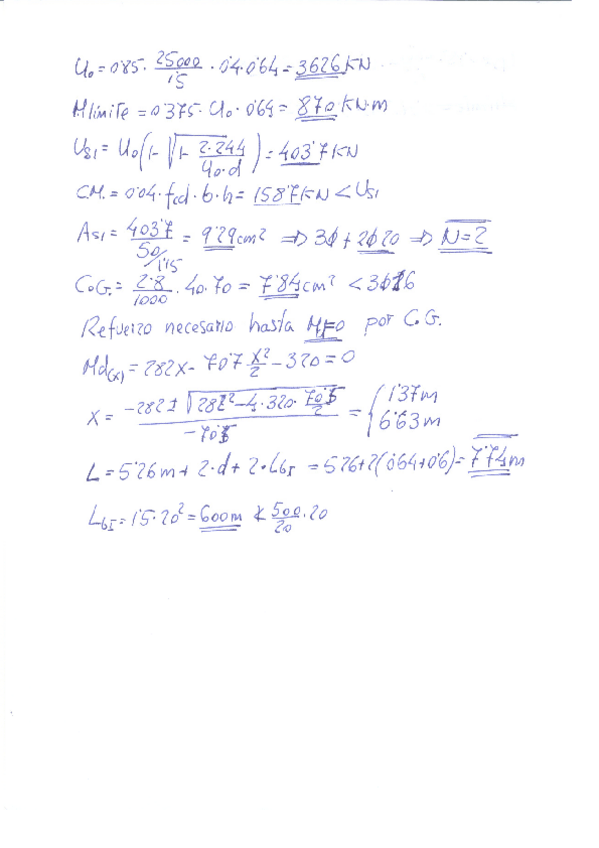 U₀ = 0'85 · 25000/1'5 · 0'4 · 0'64 = 3626 KN
Mlimite = 0'375 · U₀ · 0'64 = 870 KN·m
Us1 = U₀(1 - √(1 - 2·244/(U₀·d))) = 403'7 KN
C.M. = 0'04 · fcd · b · h = 158'7 KN < Us1
As1 = 403'7/(50/1'15) = 9'29 cm² ⇒ 3Φ + 2Φ20 ⇒ N=2
C.G. = 2'8/1000 · 40 · 70 = 7'84 cm² < 3Φ16
Refuerzo necesario hasta por C.G.
Md(x) = 282x - 70'7 x²/2 - 320 = 0
x = (-282 ± √(282² - 4·320·70'5/2))/-70'5 = { 1'37m 6'63m
L = 5'26m + 2·d + 2·LbI = 5'26 + 2(0'64 + 0'6) = 7'74m
LbI = 1'5 · 20² = 600m ≮ 500/20 · 20